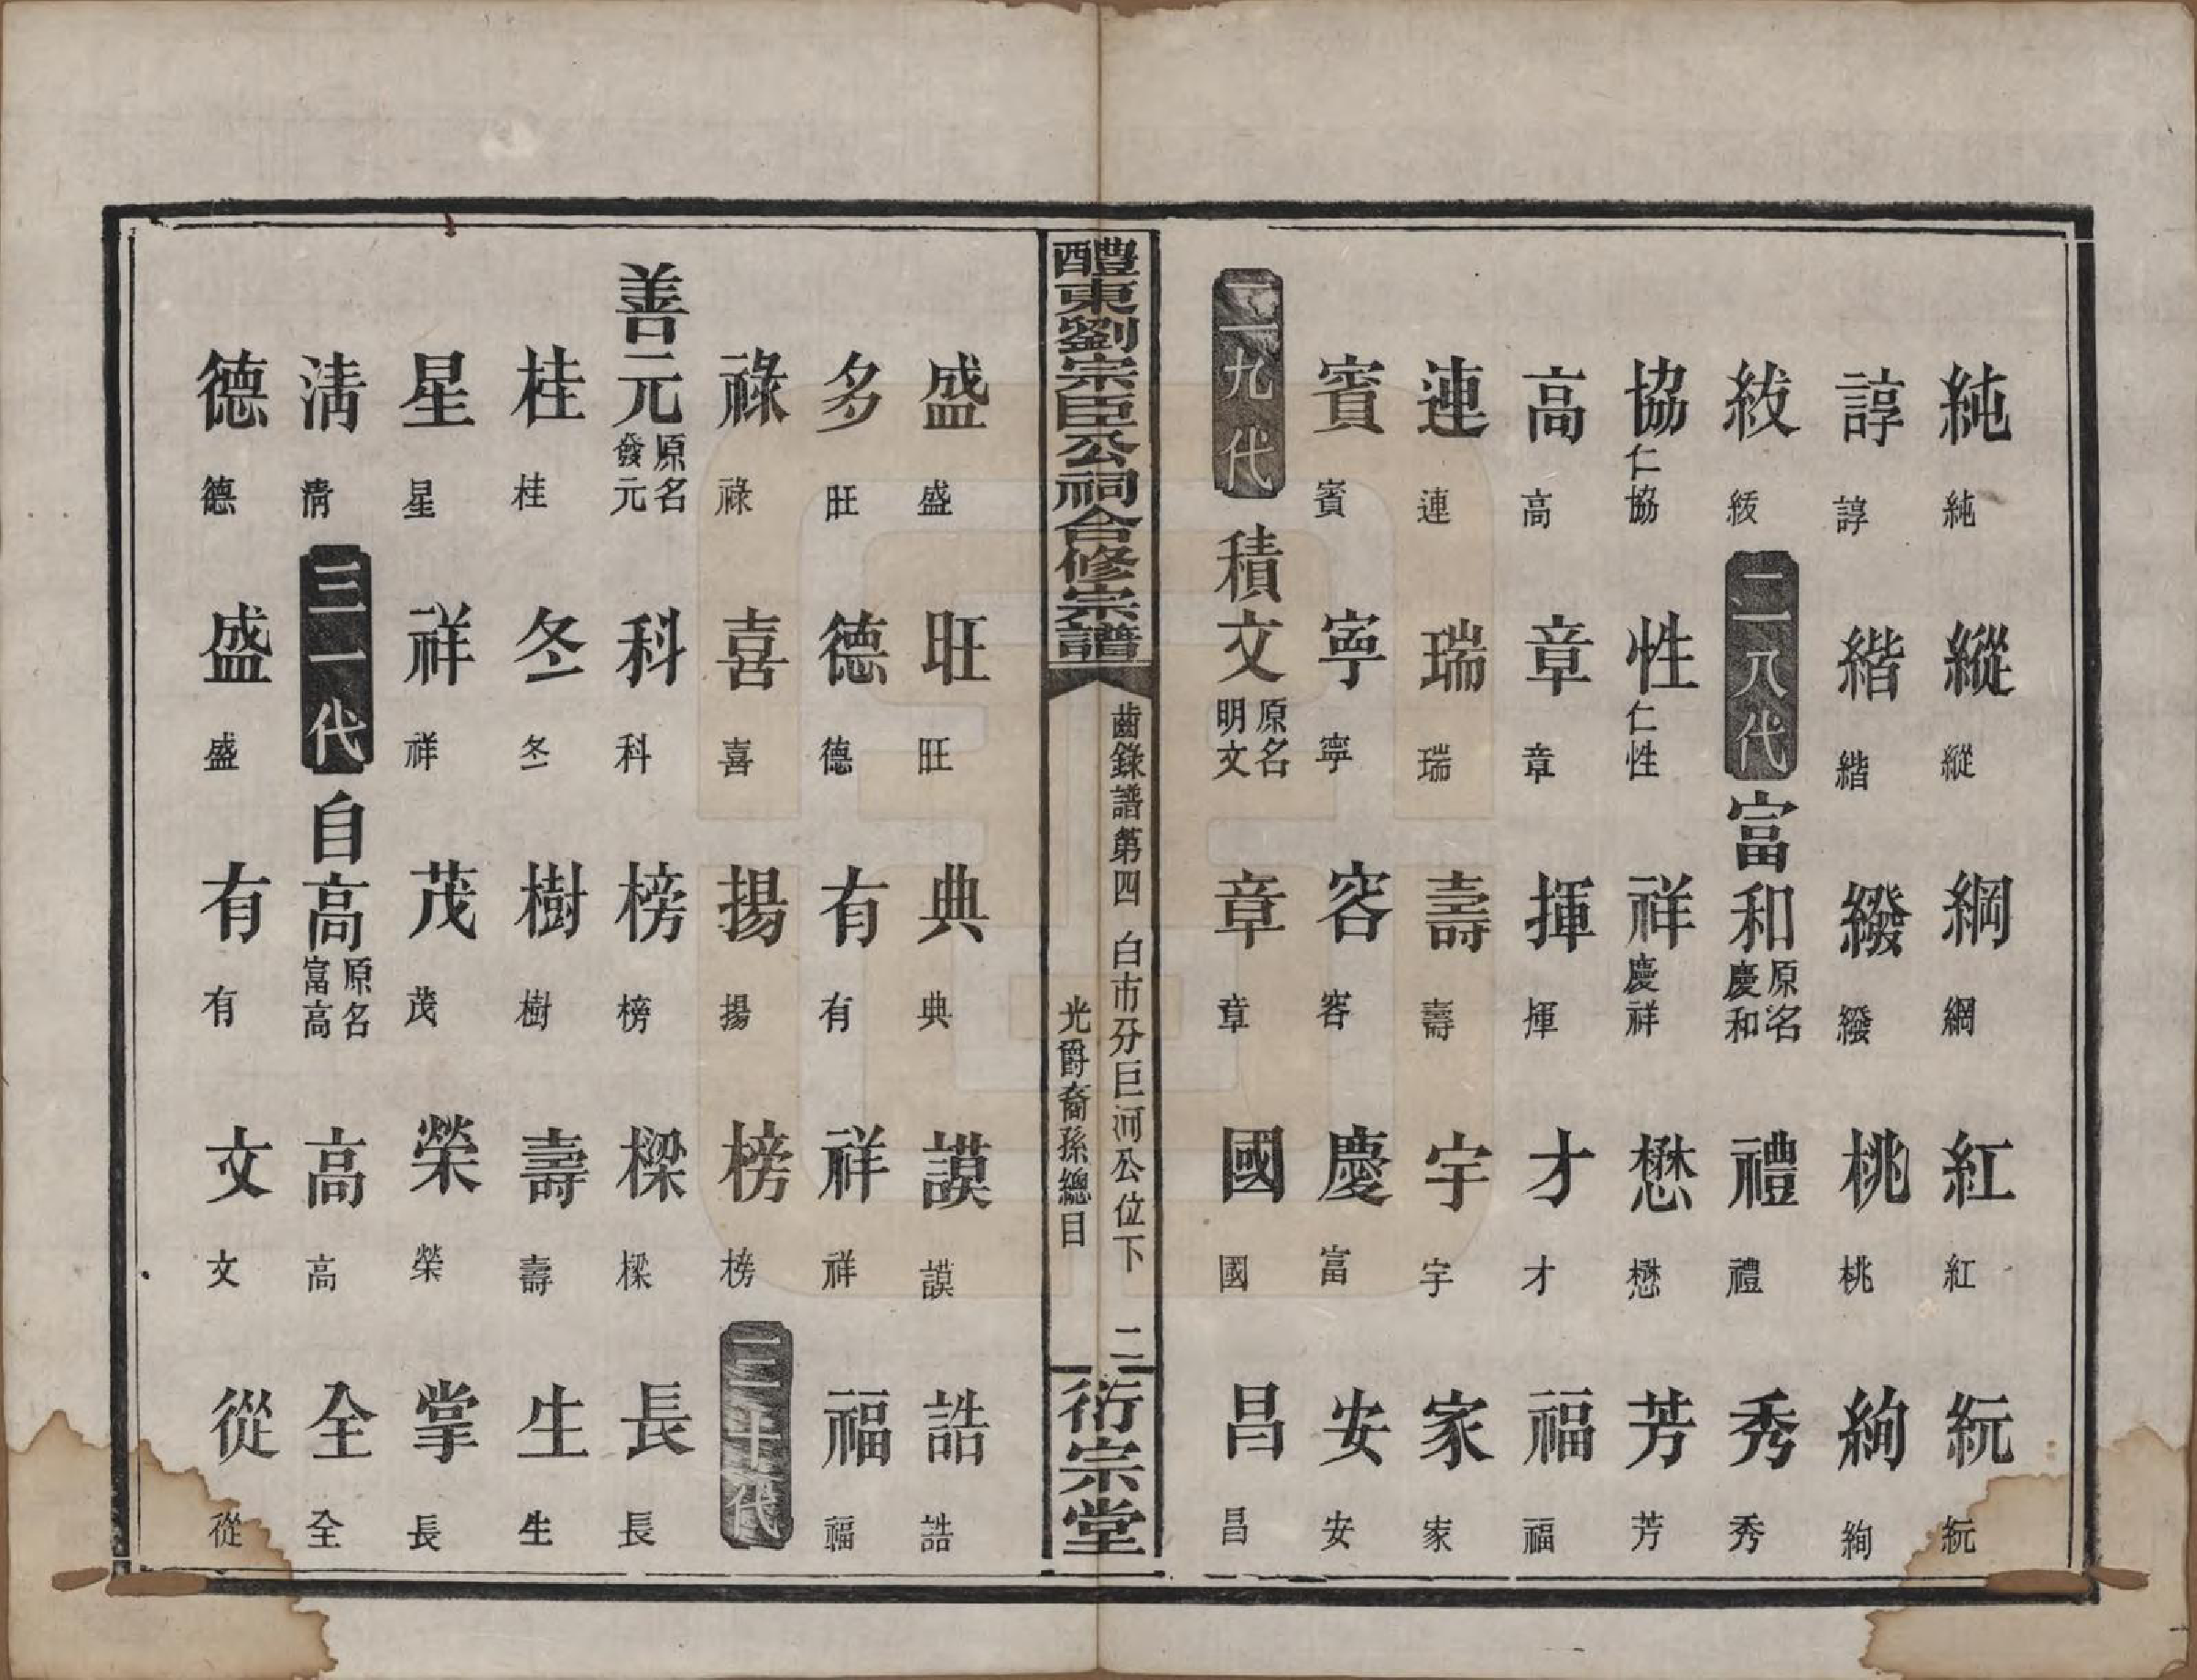 純 純 縱 縱 綱 綱 紅 紅 紈 紈
諄 諄 緒 緒 綴 綴 桃 桃 絢 絢
紱 紱 二八代 富和 原名慶和 禮 禮 秀 秀
協 仁協 性 仁性 祥 慶祥 懋 懋 芳 芳
高 高 章 章 揮 揮 才 才 福 福
連 連 瑞 瑞 壽 壽 宇 宇 家 家
賓 賓 寧 寧 容 容 慶 富 安 安
二九代 積文 原名明文 章 章 國 國 昌 昌
醴東劉宗臣公祠合修宗譜
齒錄譜第四 白市分巨河公位下 二
光爵裔孫總目
衍宗堂
盛 盛 旺 旺 典 典 謨 謨 誥 誥
多 旺 德 德 有 有 祥 祥 福 福
祿 祿 喜 喜 揚 揚 榜 榜 三十代
善元 原名發元 科 科 榜 榜 樑 樑 長 長
桂 桂 冬 冬 樹 樹 壽 壽 生 生
星 星 祥 祥 茂 茂 榮 榮 掌 長
清 清 三一代 自高 原名富高 高 高 全 全
德 德 盛 盛 有 有 文 文 從 從